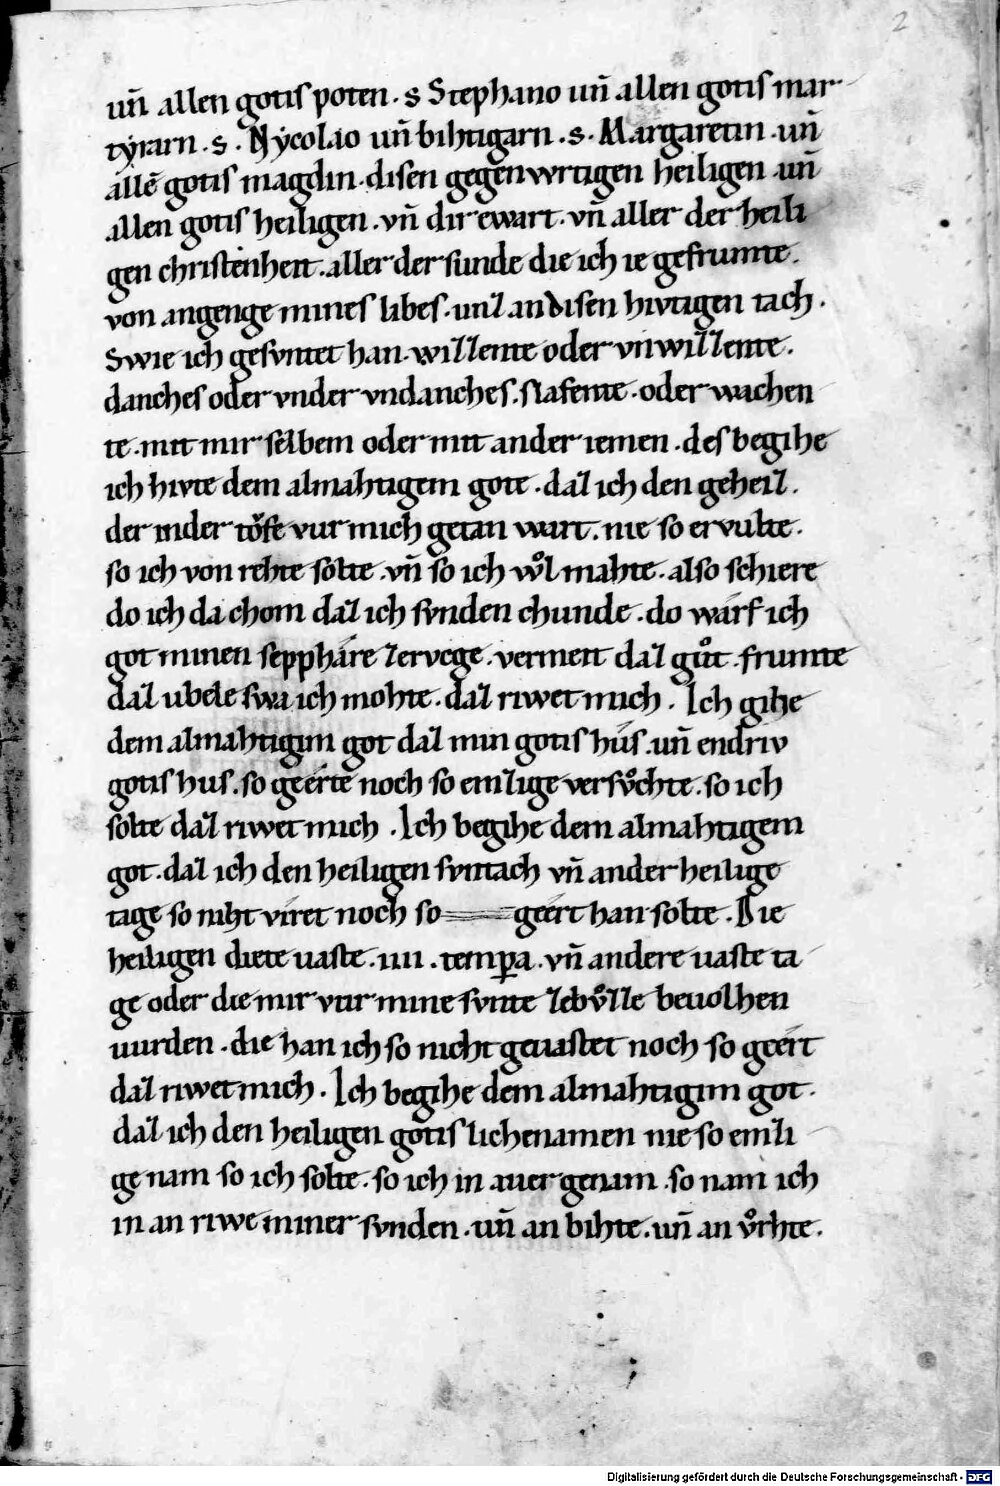 2
uñ allen gotis poten · s Stephano uñ allen gotis mar
tyrarn · s · Nycolao uñ bihtigarn · s · Margaretin · uñ
allē gotis magdin · disen gegenwrtigen heiligen · uñ
allen gotis heiligen · vñ dir ewart · vñ aller der heili
gen christenheit · aller der sunde die ich ie gefrumte ·
von angenge mines libes · unz an disen hivtigen tach ·
Swie ich gesvntet han · willente oder vnwillente ·
danches oder vnder vndanches · slafente · oder wachen
te · mit mir selbem oder mit ander iemen · des begihe
ich hivte dem almahtigem gote · daz ich den geheiz ·
der inder toͮfe vur mich getan wart · nie so ervulte ·
so ich von rehte solte · vñ so ich woͤl mahte · also schiere
do ich da chom daz ich svnden chunde · do warf ich
got minen sepphare zervcge · vermeit daz guͦt · frumte
daz ubele swa ich mohte · daz riwet mich · Ich gihe
dem almahtigim got daz min gotis hús · uñ endriv
gotis hus · so geérte noch so emzige versvͦchte · so ich
solte daz riwet mich · Ich begihe dem almahtigem
got · daz ich den heiligen svntach vñ ander heilige
tage so niht víret noch so geért han solte · Die
heiligen diete uaste · iiii · tempa̲ · vñ andere uaste ta
ge oder die mir vur mine svnte zebvͦzze beuolhen
uurden · die han ich so nicht geuastet noch so geért
daz riwet mich · Ich begihe dem almahtigim got ·
daz ich den heiligen gotis lichenamen nie so emzi
ge nam so ich solte · so ich in auer genam · so nam ich
in an riwe miner svnden · uñ an bihte · uñ an vͦrhte ·
Digitalisierung gefördert durch die Deutsche Forschungsgemeinschaft - DFG